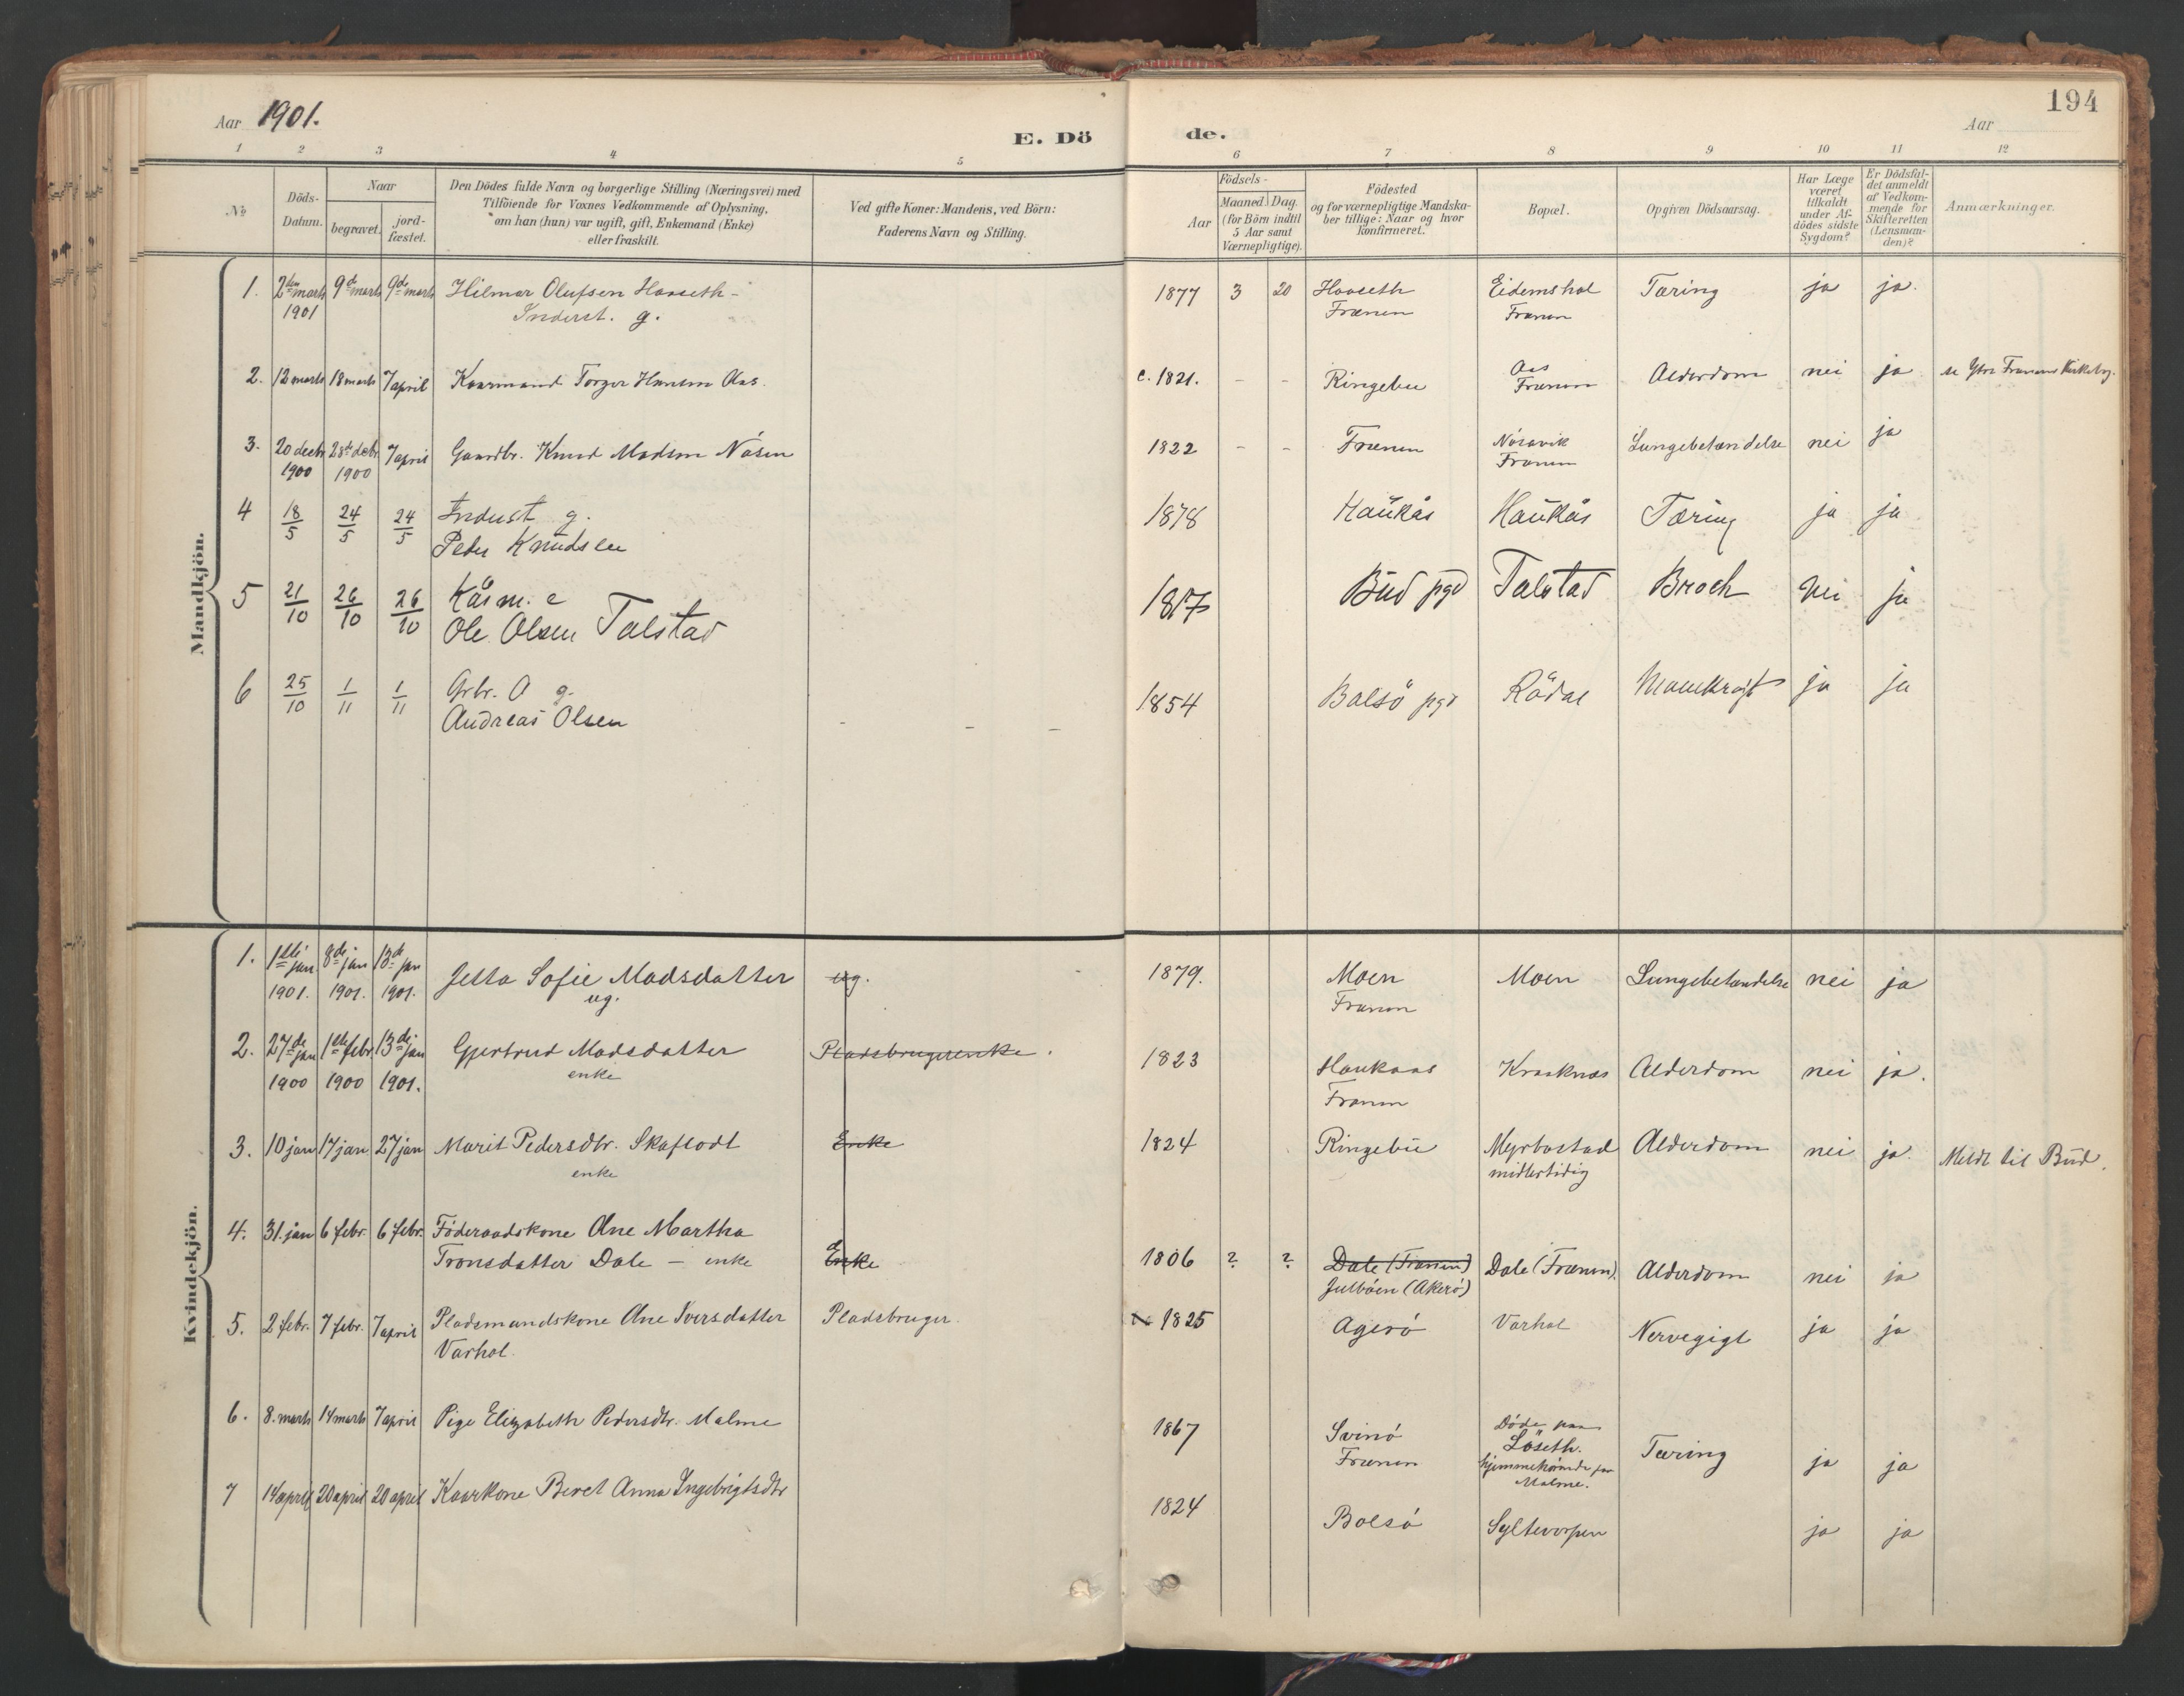 Aar 1901.
E. Döde.
194
Aar
1 2 3 4 5 6 7 8 9 10 11 12
№
Döds-Datum.
Naar
begravet.
jordfæstet.
Den Dödes fulde Navn og borgerlige Stilling (Næringsvei) med
Tilföiende for Voxnes Vedkommende af Oplysning,
om han (hun) var ugift, gift, Enkemand (Enke)
eller fraskilt.
Ved gifte Koner: Mandens, ved Börn:
Faderens Navn og Stilling.
Födsels-
Aar
Maaned. Dag.
(for Börn indtil
5 Aar samt
Værnepligtige).
Födested
og for værnepligtige Mandskaber tillige: Naar og hvor
konfirmeret.
Bopæl.
Opgiven Dödsaarsag.
Har Læge
været
tilkaldt
under Afdödes sidste
Sygdom?
Er Dödsfaldet anmeldt
af Vedkommende for
Skifteretten
(Lensmanden)?
Anmærkninger.
Mandkjön.
1. 2den marts 9de marts 9de marts Hilmar Olufsen Haaseth - 1877 3 20 Haaseth Eidemshal Tæring ja ja.
1901 Inderst. g. Frænen Frænen
2. 12 marts 18 marts 7 april Kaarmand Torger Hansen Aas. c. 1821. - - Ringebu Aas Alderdom nei ja se Ytre Frænens Kirkebog.
Frænen
3. 20 decbr 28de decbr 7 april Gaardbr. Knud Madsen Nåsen 1822 - - Frænen Nåsavik Lungebetændelse nei ja
1900 1900 Frænen
4 18/5 24/5 24/5 Inderst g. 1878 Haukås Haukås Tæring ja ja
Peder Knudsen
5 21/10 26/10 26/10 Kårm. e 1817 Bud pgd Talstad Brock Nei ja
Ole Olsen Talstad
6 25/10 1/11 1/11 Grbr. O g. 1854 Bolsö pgd Rödal ja ja
Andreas Olsen - - -
Kvindekjön.
1. 1ste jan. 8de jan 13de jan Jetta Sofie Madsdatter ug. 1879. Moen Moen Lungebetændelse nei ja
1901. 1901. 1901. ug. Frænen
2. 27de jan 1ste febr 13de jan Gjertrud Madsdatter Pladsbrugerenke. 1823 Haukaas Kraaknæs Alderdom nei ja.
1900 1900 1901. enke Frænen
3. 10 jan 17 jan 27 jan Marit Pedersdtr. Skaflodt Enke 1824 Ringebu Myrbostad Alderdom nei ja. Meldt til Bud.
enke midlertidig
4. 31. jan 6 febr. 6 febr. Föderaadskone Ane Martha
Tronsdatter Dale - enke Enke 1806 ? ? Dale (Frænen) Dale (Frænen). Alderdom nei ja
Julbøen (Akerø)
5. 2 febr. 7 febr. 7 april Pladsmandskone Ane Iversdatter Pladsbruger. 1825 Agerø Varhol Nervegigt ja ja
Varhol.
6. 8. marts 14 marts 7 april Pige Elizabeth Pedersdtr. Malme 1867 Svinø Døde paa
Løseth.
Frænen hjemmehørende paa Tæring ja ja
Malme.
7 14 april 20 april 20 april Kaarkone Beret Anna Ingebrigtsdtr 1824 Bolsø Syltevorpen ja ja